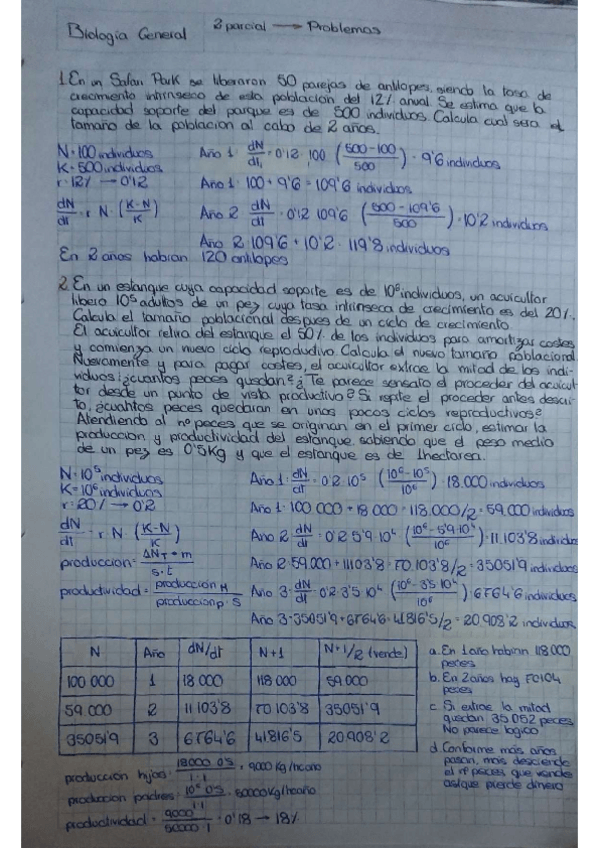 Biología General
2 parcial → Problemas
1. En un Safari Park se liberaron 50 parejas de antílopes, siendo la tasa de
crecimiento intrínseco de esta población del 12% anual. Se estima que la
capacidad soporte del parque es de 500 individuos. Calcula cual sera el
tamaño de la poblacion al cabo de 2 años.
N = 100 individuos
K = 500 individuos
r = 12% → 0'12
dN/dt = r N · (K-N / K)
Año 1: dN/dt = 0'12 · 100 (500-100 / 500) = 9'6 individuos
Año 1: 100 + 9'6 = 109'6 individuos
Año 2: dN/dt = 0'12 109'6 (500-109'6 / 500) = 10'2 individuos
Año 2: 109'6 + 10'2 = 119'8 individuos
En 2 años habran 120 antilopes
2. En un estanque cuya capacidad soporte es de 10⁶ individuos, un acuicultor
libero 10⁵ adultos de un pez cuya tasa intrinseca de crecimiento es del 20%.
Calcula el tamaño poblacional despues de un ciclo de crecimiento.
El acuicultor retira del estanque el 50% de los individuos para amortizar costes
y comienza un nuevo ciclo reproductivo. Calcula el nuevo tamaño poblacional.
Nuevamente y para pagar costes, el acuicultor extrae la mitad de los indi-
viduos: ¿cuantos peces quedan? ¿Te parece sensato el proceder del acuicul-
tor desde un punto de vista productivo? Si repite el proceder antes descri-
to, ¿cuantos peces quedaran en unos pocos ciclos reproductivos?
Atendiendo al nº peces que se originan en el primer ciclo, estimar la
produccion y productividad del estanque, sabiendo que el peso medio
de un pez es 0'5Kg y que el estanque es de 1hectarea.
N = 10⁵ individuos
K = 10⁶ individuos
r = 20% → 0'2
dN/dt = r N (K-N / K)
produccion = ΔN_T · m / s · t
productividad = produccion H / produccion p · S
Año 1: dN/dt = 0'2 10⁵ (10⁶ - 10⁵ / 10⁶) = 18.000 individuos
Año 1: 100 000 + 18 000 = 118.000/2 = 59.000 individuos
Año 2: dN/dt = 0'2 5'9 10⁴ (10⁶ - 5'9 · 10⁴ / 10⁶) = 11.103'8 individuos
Año 2: 59.000 + 11103'8 = 70.103'8/2 = 35051'9 individuos
Año 3: dN/dt = 0'2 3'5 10⁴ (10⁶ - 3'5 · 10⁴ / 10⁶) = 6764'6 individuos
Año 3 = 35051'9 + 6764'6 = 41816'5/2 = 20.908'2 individuos
N Año dN/dt N+1 N+1/2 (vende)
100 000 1 18.000 118 000 59.000
59.000 2 11 103'8 70 103'8 35051'9
35051'9 3 6764'6 41816'5 20.908'2
a. En 1 año habran 118 000
peces
b. En 2 años hay 70104
peces
c. Si extrae la mitad
quedan 35 052 peces
No parece logico
d. Conforme más años
pasan, más desciende
el nº peces que vende
asi que pierde dinero
produccion hijos = 18000 · 0'5 / 1 · 1 = 9000 Kg/ha·año
produccion padres = 10⁵ · 0'5 / 1 · 1 = 50000 Kg/ha·año
productividad = 9000 / 50000 · 1 = 0'18 → 18%